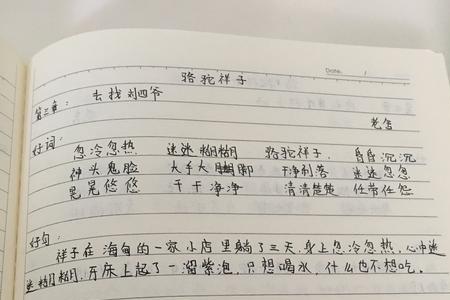 骆驼祥子 Date. /
第三章：去找刘四爷
老舍
好词：
忽冷忽热 迷迷糊糊 骆驼祥子. 昏昏沉沉
神头鬼脸 大手大脚 干净利落 迷迷忽忽
晃晃悠悠 干干净净 清清楚楚 任劳任怨
好句：
祥子在海甸的一家小店里躺了三天,身上忽冷忽热,心中迷
迷糊糊,牙床上起了一溜紫泡,只想喝水,什么也不想吃。